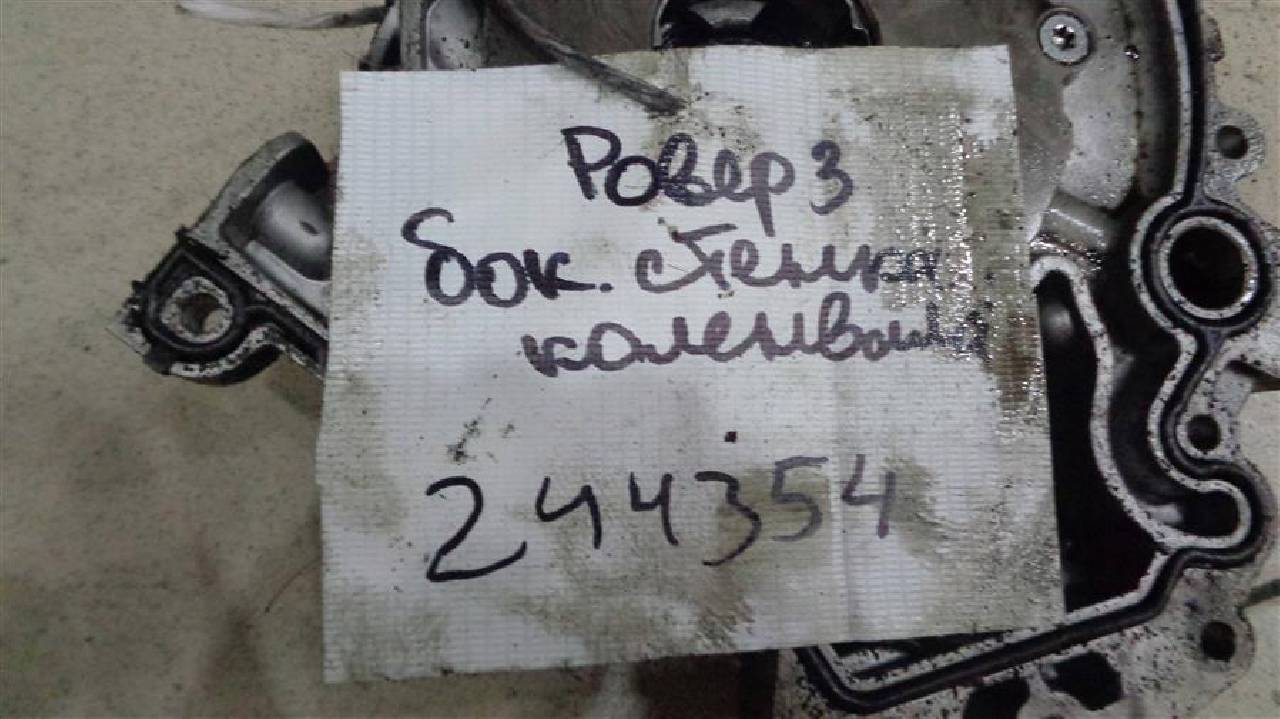 Ровер 3
бок. стенка
коленвала
244354